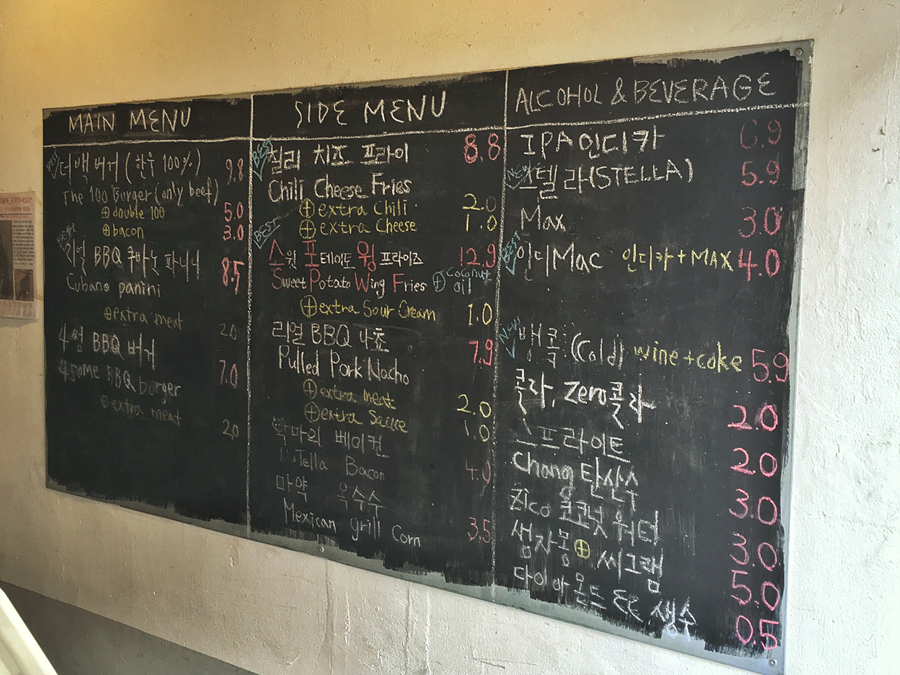 MAIN MENU
더백 버거 (한우 100%) 9.8
The 100 Burger (only beef)
⊕ double 100 5.0
⊕ bacon 3.0
BEST
리얼 BBQ 쿠바노 파니니 8.5
Cubano panini
⊕ extra meat 2.0
4썸 BBQ 버거 7.0
4some BBQ burger
⊕ extra meat 2.0
SIDE MENU
BEST
칠리 치즈 프라이 8.8
Chili Cheese Fries
⊕ extra Chili 2.0
⊕ extra Cheese 1.0
BEST
스윗 포테이토 윙 프라이즈 12.9
Sweet Potato Wing Fries ⊕ Coconut oil
⊕ extra Sour Cream 1.0
리얼 BBQ 나쵸 7.9
Pulled Pork Nacho
⊕ extra meat 2.0
⊕ extra Sauce 1.0
악마의 베이컨
Nutella Bacon 4.0
마약 옥수수
Mexican grill Corn 3.5
ALCOHOL & BEVERAGE
IPA 인디카 6.9
스텔라 (STELLA) 5.9
Max 3.0
BEST
인디Mac 인디카+MAX 4.0
뱅콕 (Cold) wine+coke 5.9
콜라, Zero콜라 2.0
스프라이트 2.0
Chang 탄산수 3.0
Zico 코코넛 워터 3.0
생자몽 ⊕ 씨그램 5.0
다이아몬드 생수 0.5